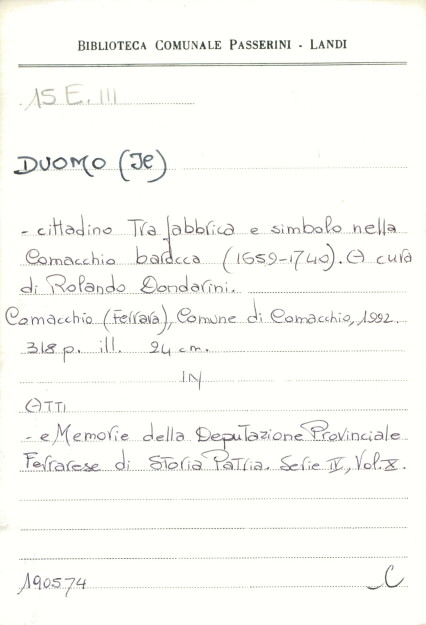 BIBLIOTECA COMUNALE PASSERINI - LANDI
15 E. III
DUOMO (Il)
- cittadino Tra fabbrica e simbolo nella
Comacchio barocca (1659-1740). A cura
di Rolando Dondarini.
Comacchio (Ferrara), Comune di Comacchio, 1992.
318 p. ill. 24 cm.
IN
ATTI
- e Memorie della Deputazione Provinciale
Ferrarese di Storia Patria. Serie IV, Vol. X.
190574 C